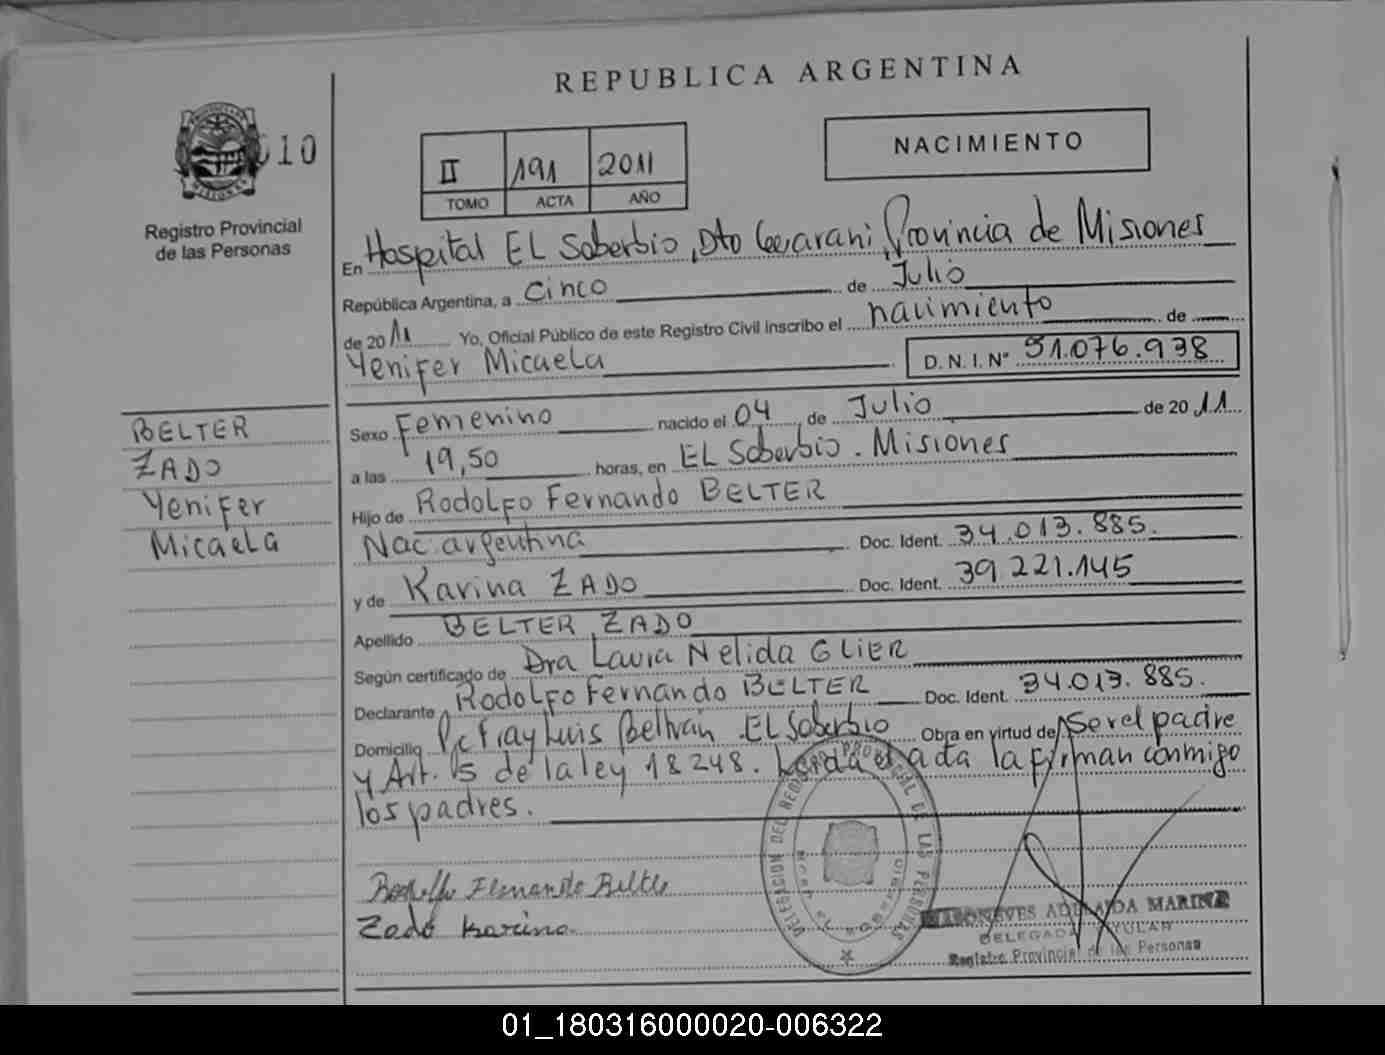 REPUBLICA ARGENTINA
010
Registro Provincial
de las Personas
II 191 2011
TOMO ACTA AÑO
NACIMIENTO
En Hospital EL Soberbio, Dto Guarani, Provincia de Misiones
República Argentina, a cinco de Julio
de 2011 Yo, Oficial Público de este Registro Civil inscribo el nacimiento de
Yenifer Micaela D. N. I. N° 51.076.938
BELTER
ZADO
Yenifer
Micaela
Sexo Femenino nacido el 04 de Julio de 2011
a las 19,50 horas, en EL Soberbio. Misiones
Hijo de Rodolfo Fernando BELTER
Nac. argentina Doc. Ident. 34.013.885.
y de Karina ZADO Doc. Ident. 39.221.145
Apellido BELTER ZADO
Según certificado de Dra Laura Nelida GLIER
Declarante Rodolfo Fernando BELTER Doc. Ident. 34.013.885.
Domicilio Fray Luis Beltran. EL Soberbio Obra en virtud de Ser el padre
y Art. 5 de la ley 18248. Leida el acta la firman conmigo
los padres.
Rodolfo Fernando Belter
Zado Karina
DELEGACION DEL REGISTRO PROVINCIAL DE LAS PERSONAS
ADELAIDA MARINA
DELEGADA TITULAR
Registro Provincial de las Personas
01_180316000020-006322